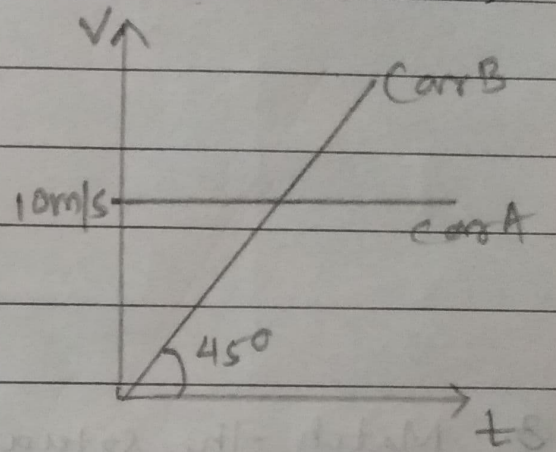 V
Carr B
10m/s
car A
45°
t